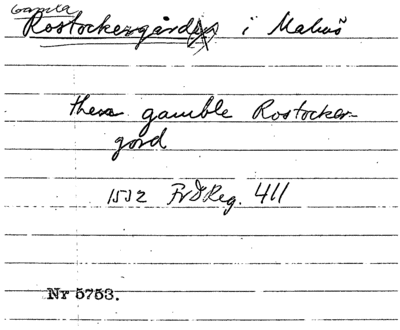 Gamla
Rostockergård i Malmö
then gamble Rostocker-
gord
1532 Fr I Reg. 411
Nr 5753.